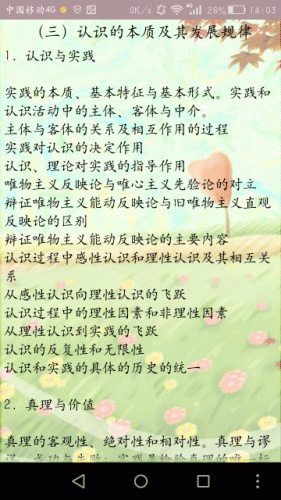 中国移动4G
0K/s
4G
26%
14:03
（三）认识的本质及其发展规律
1. 认识与实践
实践的本质、基本特征与基本形式。实践和
认识活动中的主体、客体与中介。
主体与客体的关系及相互作用的过程
实践对认识的决定作用
认识、理论对实践的指导作用
唯物主义反映论与唯心主义先验论的对立
辩证唯物主义能动反映论与旧唯物主义直观
反映论的区别
辩证唯物主义能动反映论的主要内容
认识过程中感性认识和理性认识及其相互关
系
从感性认识向理性认识的飞跃
认识过程中的理性因素和非理性因素
从理性认识到实践的飞跃
认识的反复性和无限性
认识和实践的具体的历史的统一
2. 真理与价值
真理的客观性、绝对性和相对性。真理与谬
误、成功与失败；实践是检验真理的唯一标